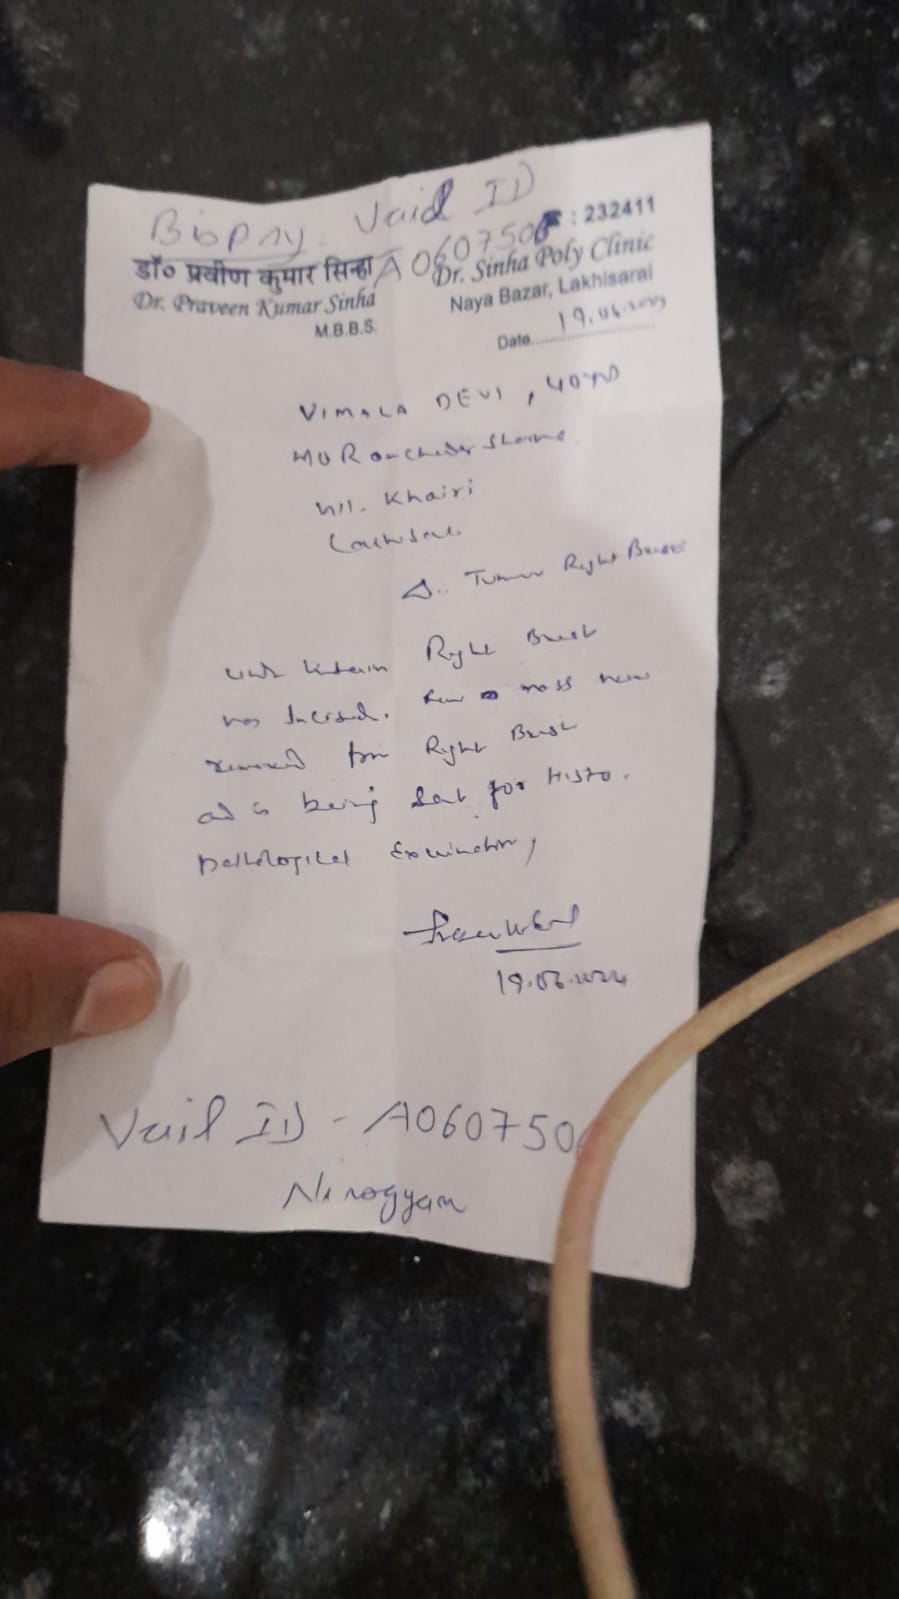 Biopsy Vail ID
A0607506 : 232411
डॉ० प्रवीण कुमार सिन्हा
Dr. Praveen Kumar Sinha
M.B.B.S.
Dr. Sinha Poly Clinic
Naya Bazar, Lakhisarai
Date 19.06.
VIMALA DEVI, 40
Sharma
Vill. Khairi
Tumor Right Breast
Right Breast
was Incised. mass
removed from Right Breast
and is being sent for Histo.
pathological Examination,
19.06.2024
Vail ID - A060750
Nirogyam